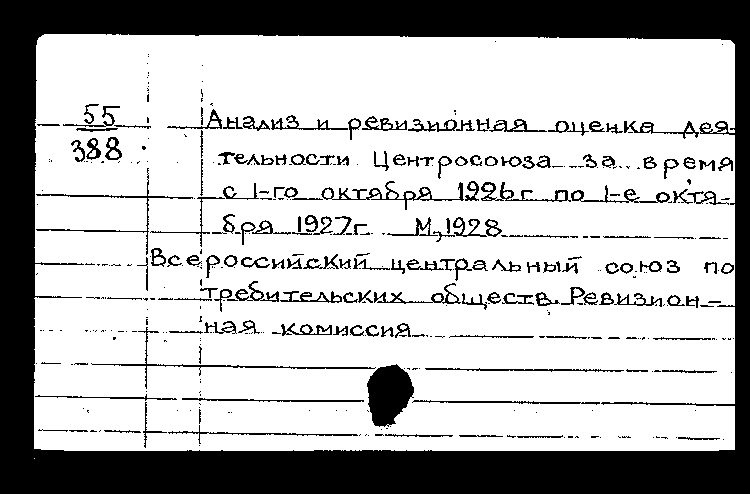 55
388
Анализ и ревизионная оценка дея-
тельности Центросоюза за время
с 1-го октября 1926г по 1-е октя-
бря 1927г М,1928
Всероссийский центральный союз по
требительских обществ. Ревизион-
ная комиссия